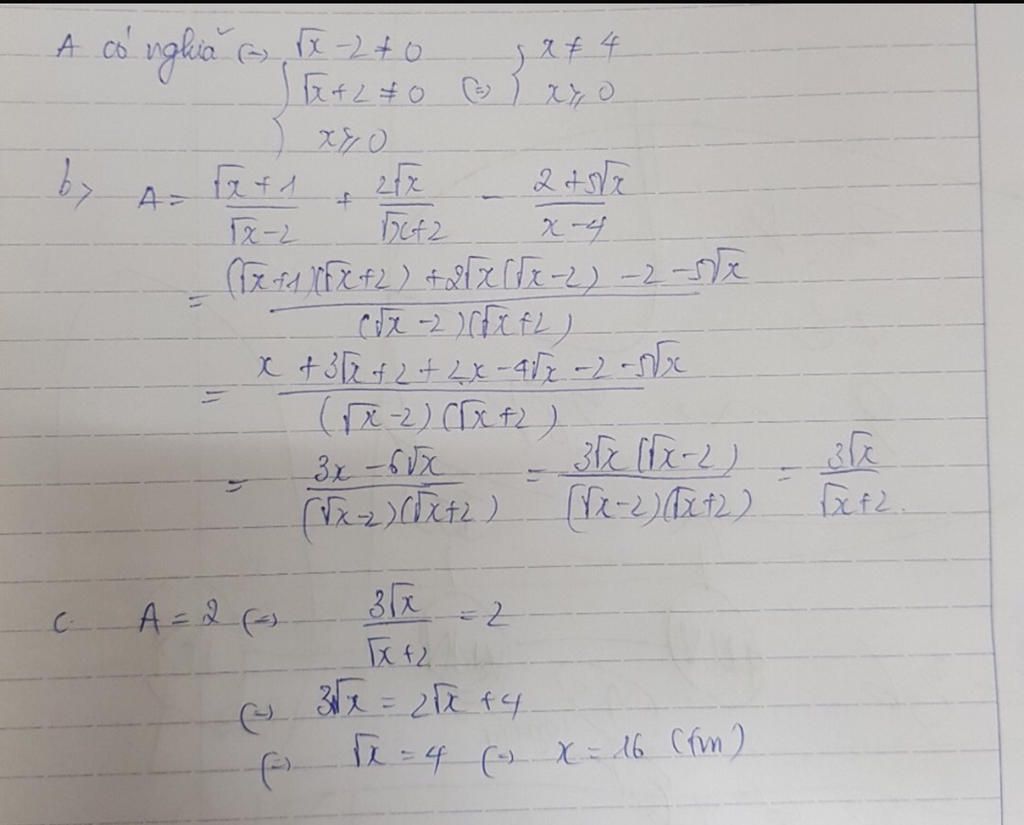 A có nghĩa (=) √x - 2 ≠ 0 { x ≠ 4
{ √x + 2 ≠ 0 (=) x ≥ 0
x ≥ 0
b> A = (√x + 1)/(√x - 2) + 2√x/(√x + 2) - (2 + 5√x)/(x - 4)
= ((√x + 1)(√x + 2) + 2√x(√x - 2) - 2 - 5√x)/((√x - 2)(√x + 2))
= (x + 3√x + 2 + 2x - 4√x - 2 - 5√x)/((√x - 2)(√x + 2))
= (3x - 6√x)/((√x - 2)(√x + 2)) = (3√x(√x - 2))/((√x - 2)(√x + 2)) = 3√x/(√x + 2).
c. A = 2 (=) 3√x/(√x + 2) = 2
(=) 3√x = 2√x + 4
(=) √x = 4 (=) x = 16 (tm)